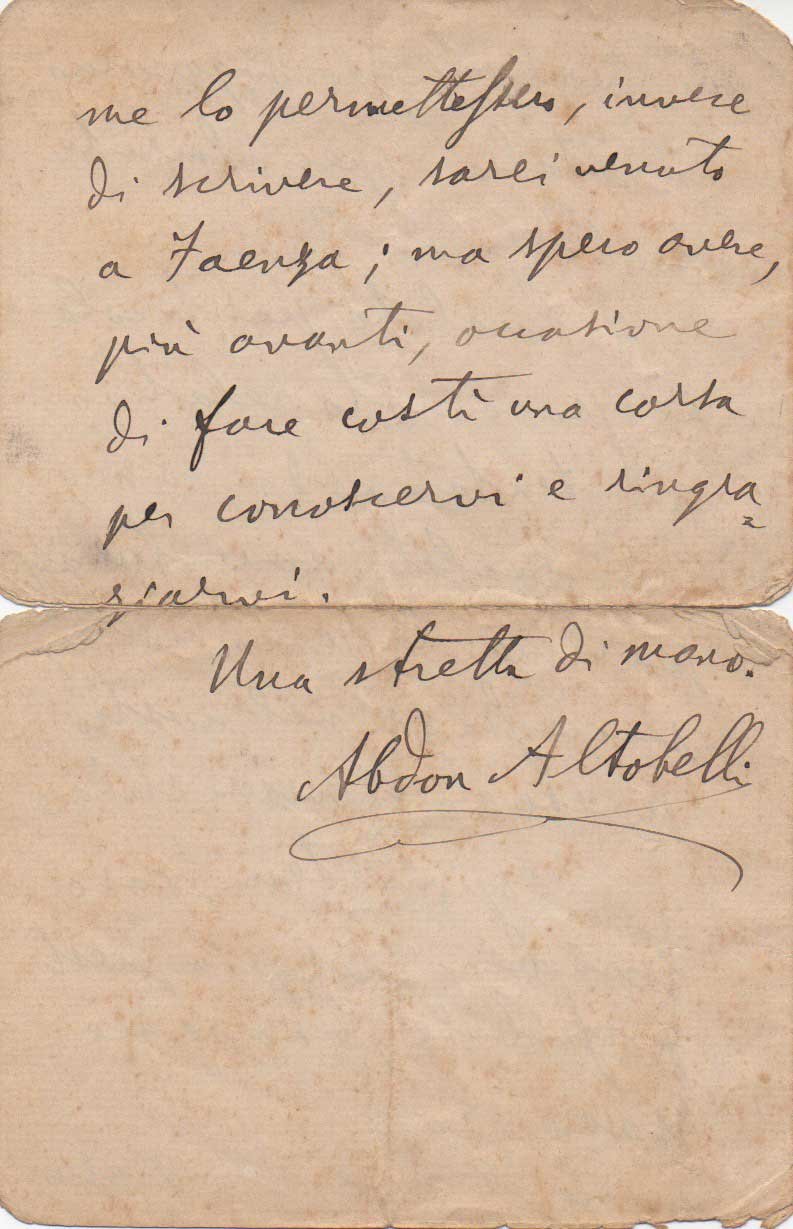 me lo permettessero, invece
di scrivere, sarei venuto
a Faenza; ma spero avere,
più avanti, occasione
di fare costì una corsa
per conoscervi e ringra=
ziarvi.
Una stretta di mano.
Abdon Altobelli